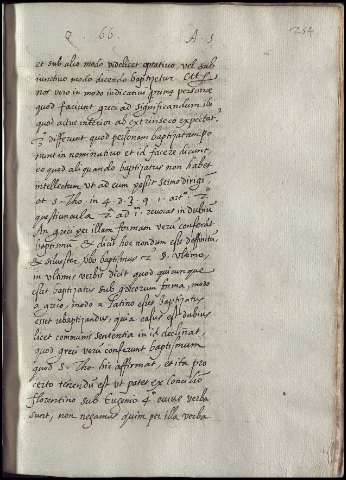 q. 66. A. 5
254
et sub alio modo videlicet optativo, vel sub
iunctivo modo dicendo baptizetur.
nos vero in modo indicativo primæ personæ
quod faciunt greci ad significandum
quod actus interior ad extrinseco
2º differunt quod personam baptizatam po
nunt in nominativo et id facere dicunt,
eo quod aliquando baptizatus non habet
intellectum ut ad eum possit sermo dirigi
ut S. Tho. in 4. d. 3. q. 1. artº. 2º
quæstiuncula 2ª ad 1º. revocas in dubiū
An greci per illam formam verū conferāt
baptismū & dicit hoc nondum esse definitū
& silvester verbo baptismus 2 §. ultimo,
in ultimis verbis dicit quod quicunque
esset baptizatus sub grecorum forma, modo
a greco, modo a latino esset baptizatus
esset rebaptizandus, quia casus est dubius
licet communis sententia in id declinat,
quod greci verū conferunt baptismum
quod S. Tho. hic affirmat, et ita pro
certo tenendū est ut patet ex concilio
florentino sub Eugenio 4º cuius verba
sunt, non negamus quin per illa verba